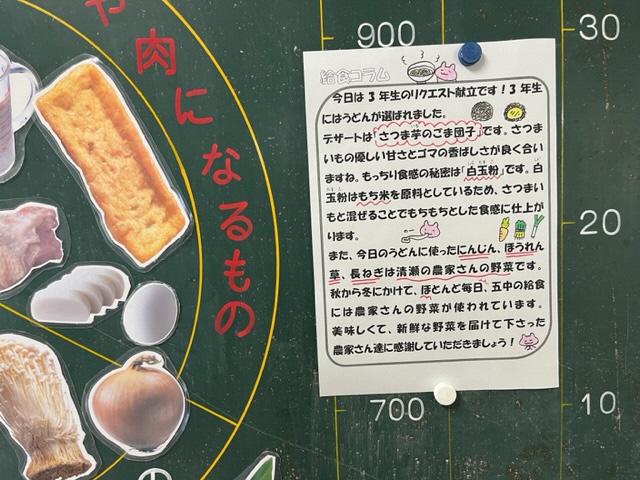 や
肉になるもの
900
30
20
700
10
の
給食コラム
今日は3年生のリクエスト献立です！3年生
にはうどんが選ばれました。
デザートは「さつま芋のごま団子」です。さつま
いもの優しい甘さとゴマの香ばしさが良く合い
ますね。もっちり食感の秘密は「白玉粉」です。白
玉粉はもち米を原料としているため、さつまい
もと混ぜることでもちもちとした食感に仕上が
ります。
また、今日のうどんに使ったにんじん、ほうれん
草、長ねぎは清瀬の農家さんの野菜です。
秋から冬にかけて、ほとんど毎日、五中の給食
には農家さんの野菜が使われています。
美味しくて、新鮮な野菜を届けて下さった
農家さん達に感謝していただきましょう！